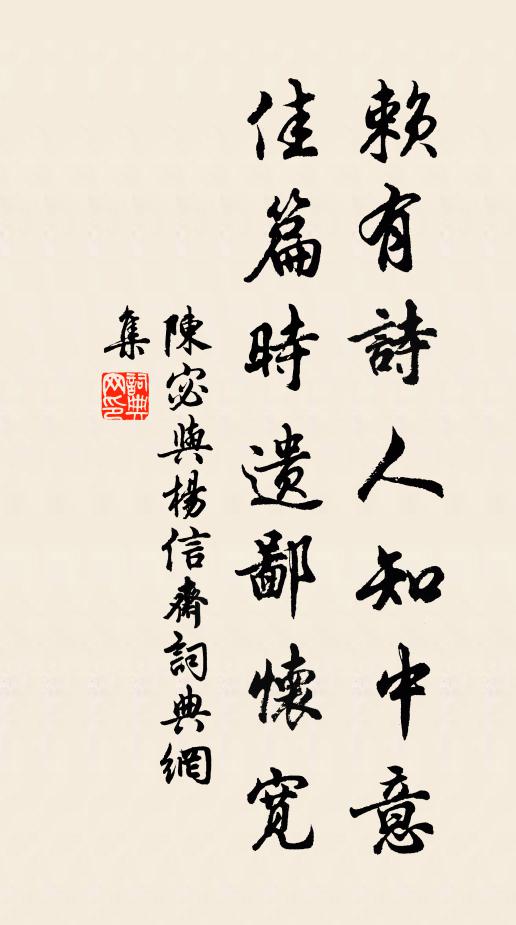 賴有詩人知中意
佳篇時遺鄙懷寬
陳宓與楊信齋詞典網
集
詞典网印